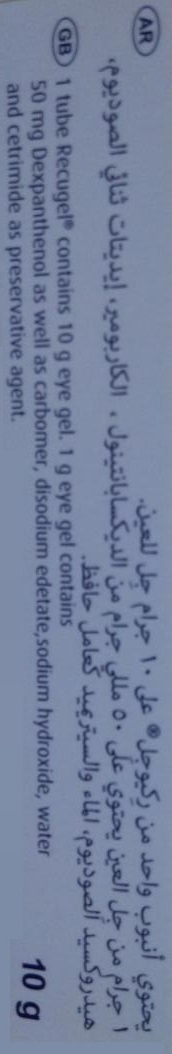 AR
يحتوي أنبوب واحد من ركيوجل® على ١٠ جرام جل للعين.
١ جرام من جل العين يحتوي على ٥٠ مللي جرام من الديكسابانتينول ، الكاربومير، إيديتات ثنائي الصوديوم،
هيدروكسيد الصوديوم، الماء والسيتريميد كعامل حافظ.
GB 1 tube Recugel® contains 10 g eye gel. 1 g eye gel contains
50 mg Dexpanthenol as well as carbomer, disodium edetate,sodium hydroxide, water
and cetrimide as preservative agent.
10 g